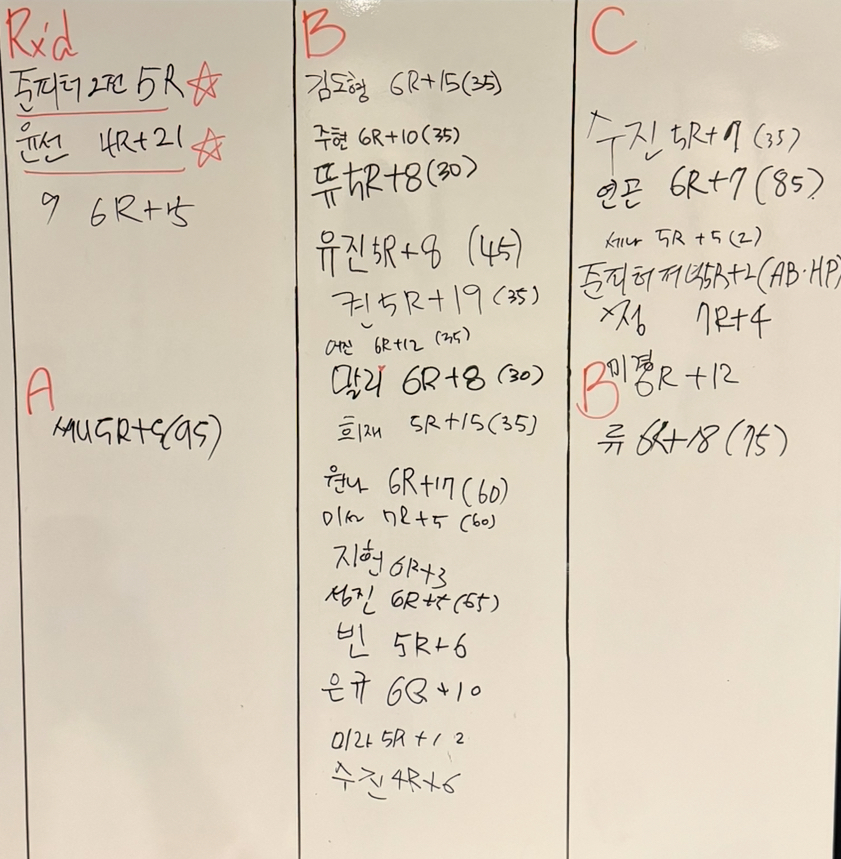 Rx'd
준피터 2편 5R ☆
윤선 4R+21 ☆
9 6R+15
A
세나 5R+5(95)
B
김도형 6R+15(35)
주현 6R+10(35)
뚜 5R+8(30)
유진 5R+8 (45)
퀸 5R+19 (35)
여진 6R+12 (35)
말리 6R+8 (30)
희재 5R+15(35)
원나 6R+17(60)
미선 7R+5 (60)
지현 6R+3
성진 6R+5(55)
빈 5R+6
은규 6R+10
미라 5R+12
수진 4R+6
C
수진 5R+9 (35)
연끈 6R+7 (85)
세나 5R+5(2)
준피터저녁5R+2(AB·HP)
정 7R+4
미경 R+12
B
류 6R+18(75)